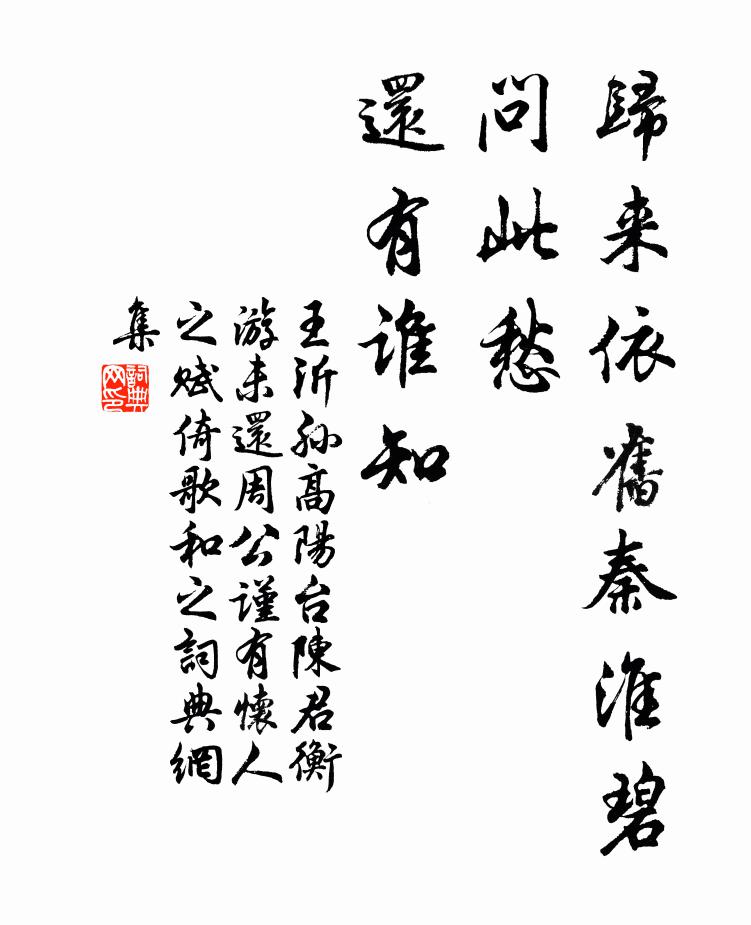 歸来依舊秦淮碧
問此愁
還有誰知
王沂孙高陽台陳君衡
游未還周公謹有懷人
之賦倚歌和之詞典網
集
詞典
网印